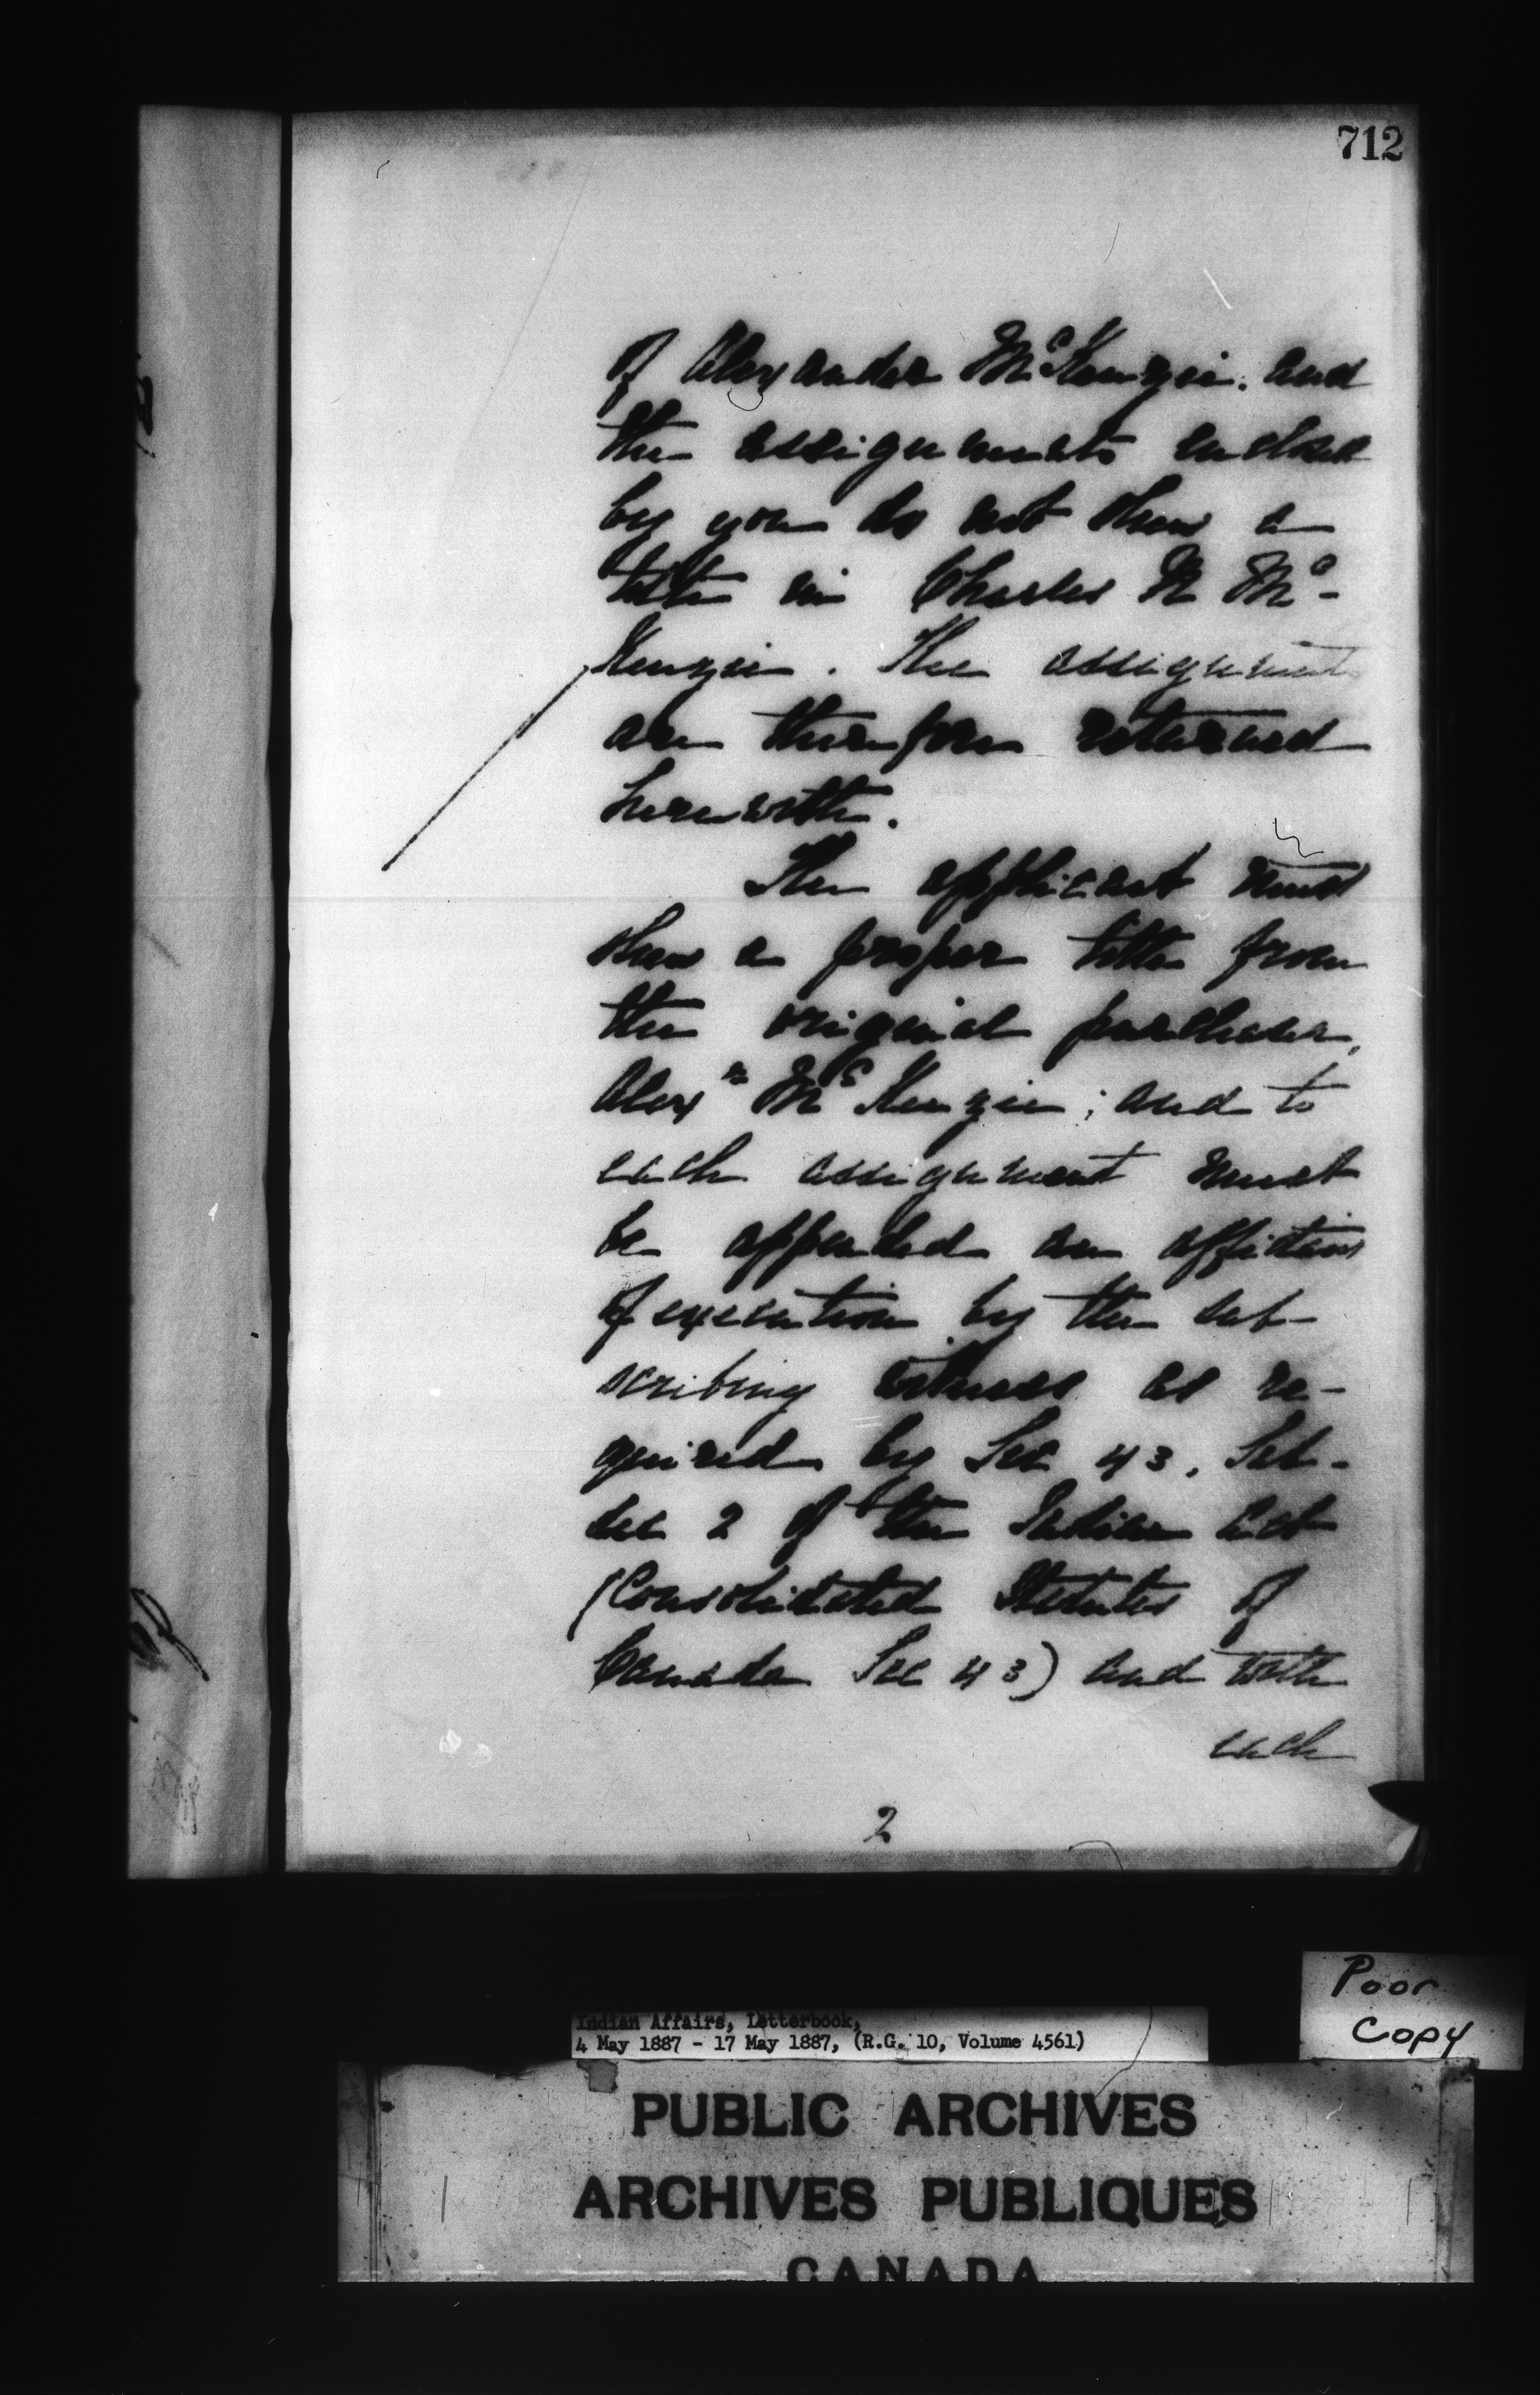 712
of Alexander McKenzie. and
the assignments enclosed
by you do not show a
title in Charles N Mc-
Kenzie. The assignments
are therefore returned
herewith.
The applicant must
show a proper title from
the original purchaser,
Alexr McKenzie; and to
each assignment must
be appended an affidavit
of execution by the sub-
scribing witness as re-
quired by Sec 43, Sub-
sec 2 of the Indian Act
(Consolidated Statutes of
Canada Sec 43) and with
each
2
Poor
Copy
Indian Affairs, Letterbook,
4 May 1887 - 17 May 1887, (R.G. 10, Volume 4561)
PUBLIC ARCHIVES
ARCHIVES PUBLIQUES
CANADA